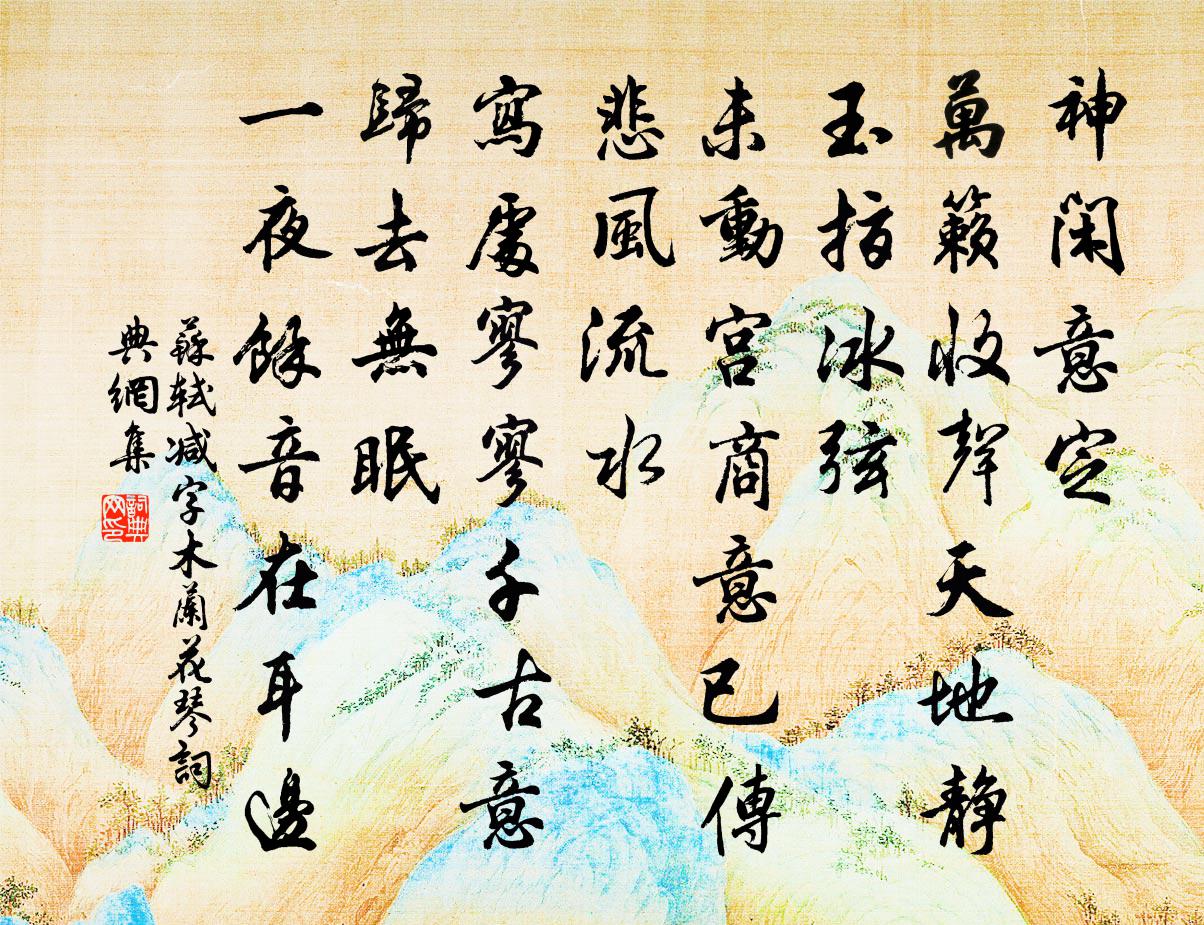 神閑意定
萬籟收聲天地静
玉指冰弦
未動宮商意已傳
悲風流水
寫處寥寥千古意
歸去無眠
一夜餘音在耳邊
蘇軾减字木蘭花琴詞
典網集
詞典
网印